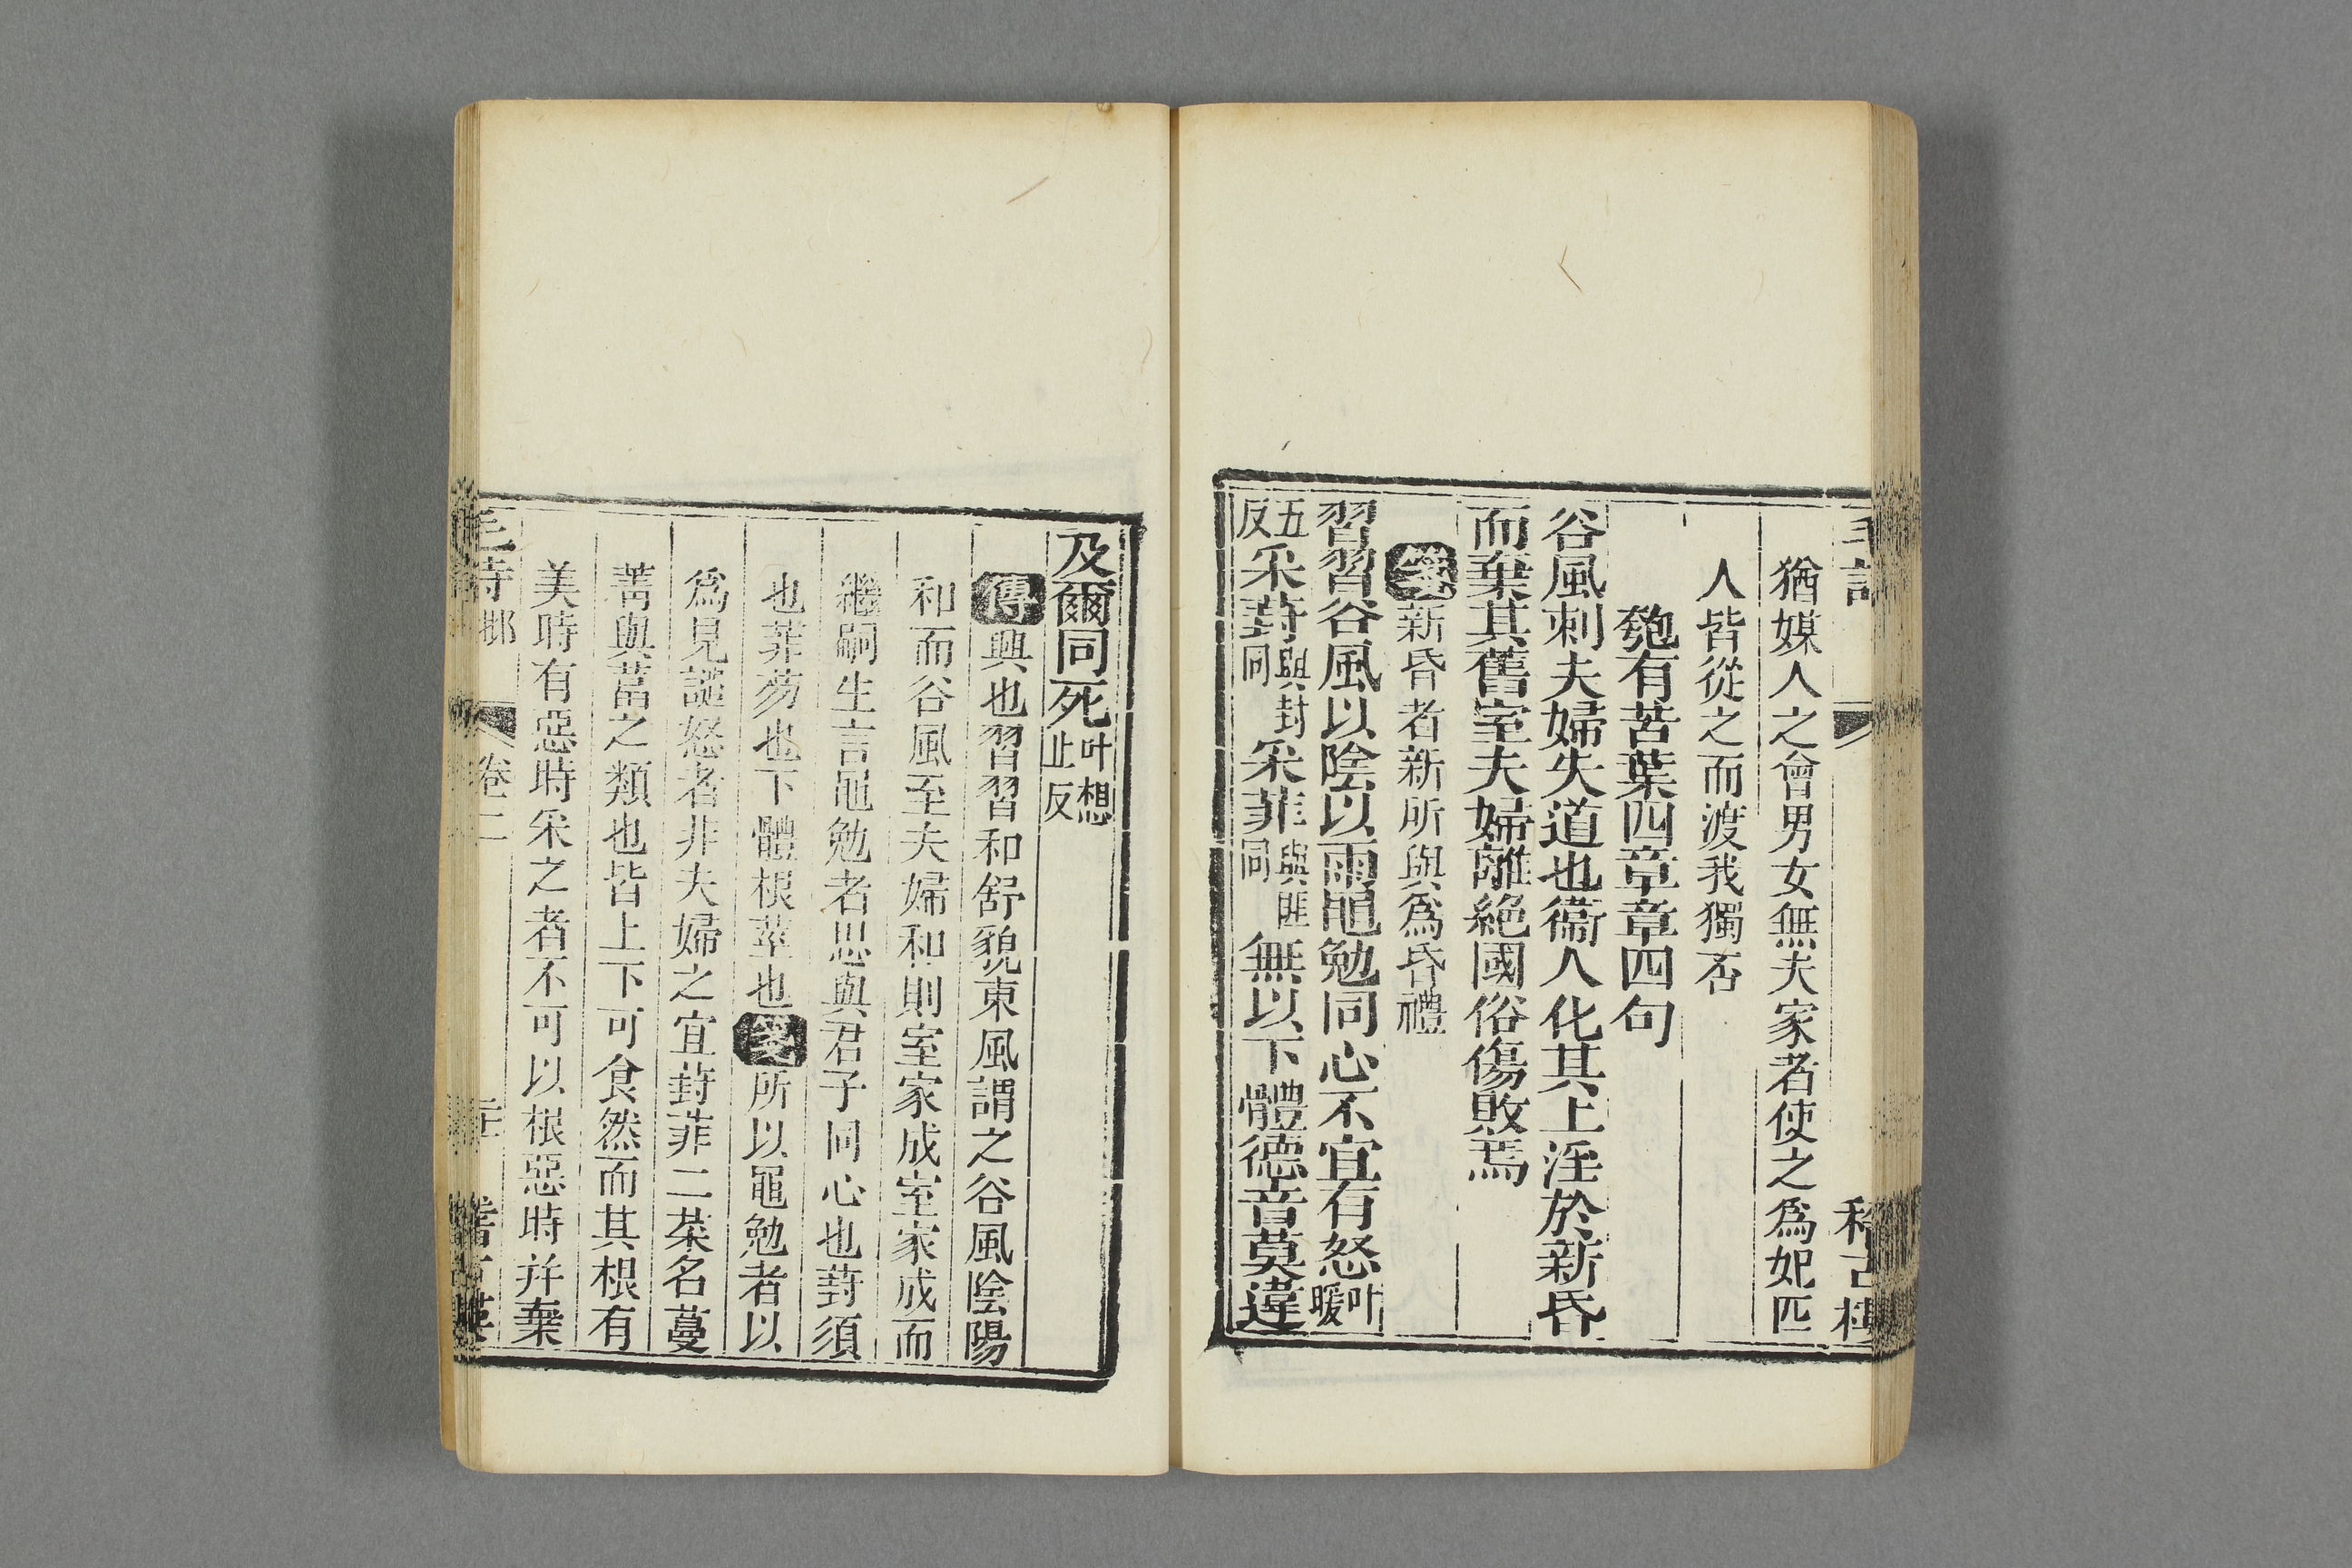 猶媒人之會男女無夫家者使之爲妃匹
人皆從之而渡我獨否
匏有苦葉四章章四句
谷風刺夫婦失道也衞人化其上淫於新昏
而棄其舊室夫婦離絶國俗傷敗焉
箋新昏者新所與爲昏禮
習習谷風以陰以雨黽勉同心不宜有怒叶暖
五反采葑與封同采菲與匪同無以下體德音莫違
及爾同死叶想止反
傳興也習習和舒貌東風謂之谷風陰陽
和而谷風至夫婦和則室家成室家成而
繼嗣生言黽勉者思與君子同心也葑須
也菲芴也下體根莖也箋所以黽勉者以
爲見譴怒者非夫婦之宜葑菲二菜名蔓
菁與葍之類也皆上下可食然而其根有
美時有惡時采之者不可以根惡時并棄
毛詩 邶 卷二